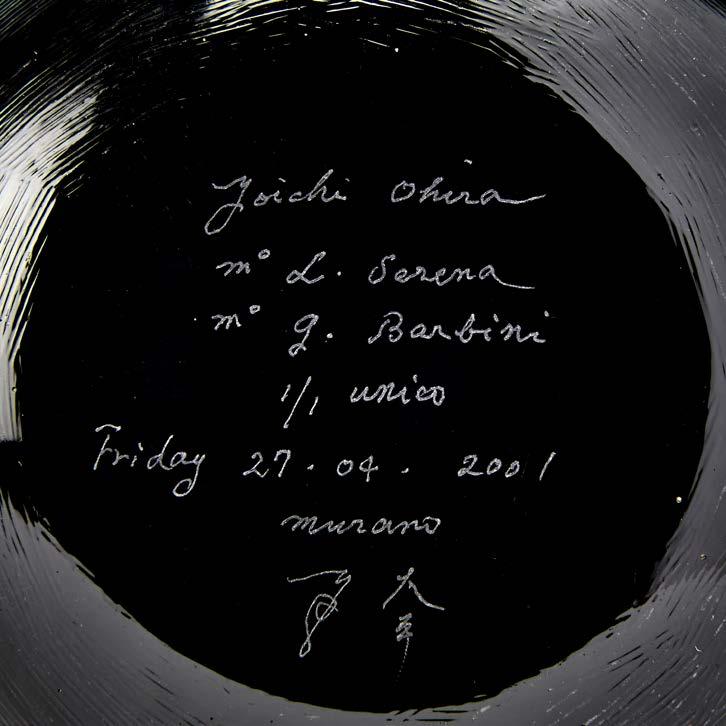 Yoichi Ohira
m° L. Serena
m° g. Barbini
1/1 unico
Friday 27.04.2001
murano